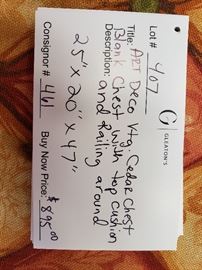 G GLEATON'S
Lot # 407
Title: ART Deco Vtg. Cedar Chest
Description: Blank Chest with top cushion
and Railing around
25" x 20" x 47"
Consignor # 461 Buy Now Price: $895.00